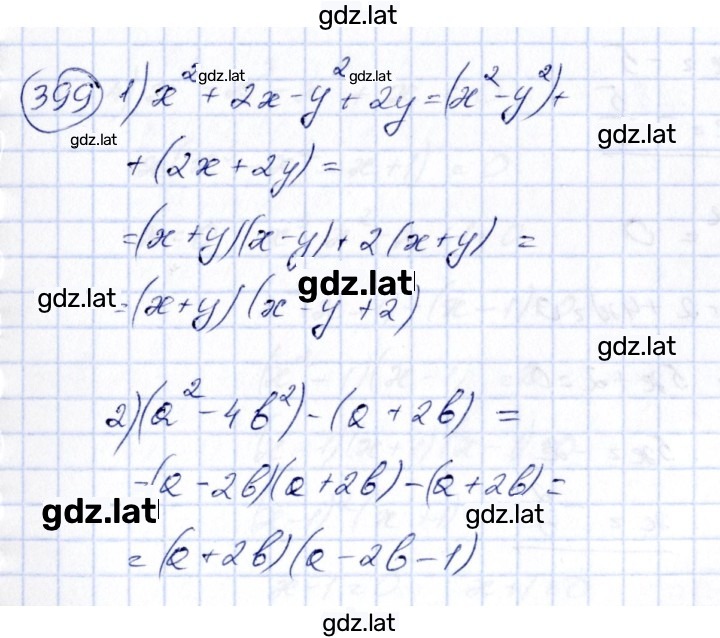 gdz.lat
399 1) x² + 2x - y² + 2y = (x² - y²) +
gdz.lat gdz.lat
gdz.lat gdz.lat
+ (2x + 2y) =
= (x + y)(x - y) + 2(x + y) =
gdz.lat gdz.lat
= (x + y)(x - y + 2)
gdz.lat
2) (a² - 4b²) - (a + 2b) =
- (a - 2b)(a + 2b) - (a + 2b) =
gdz.lat gdz.lat
= (a + 2b)(a - 2b - 1)
gdz.lat